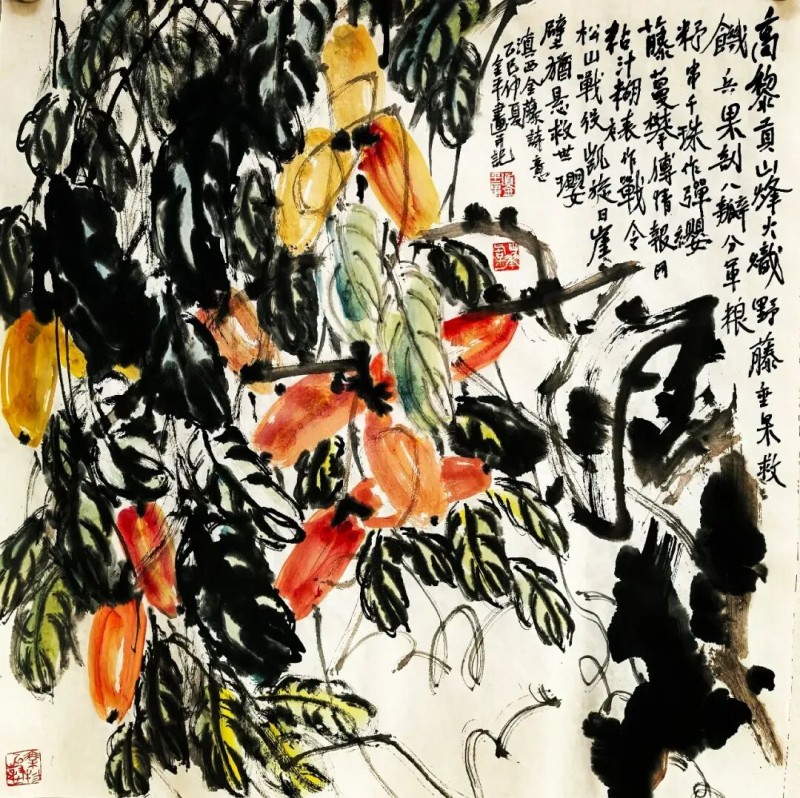 高黎贡山烽火熾野藤垂果救
饑兵果剖八瓣分軍粮
籽串千珠作彈纓
藤蔓攀縛情報网
粘汁糊裱作戰令
松山戰役凱旋日崖
壁猶悬救世瓔
滇西金藤詩意
乙巳仲夏
金平畫並記